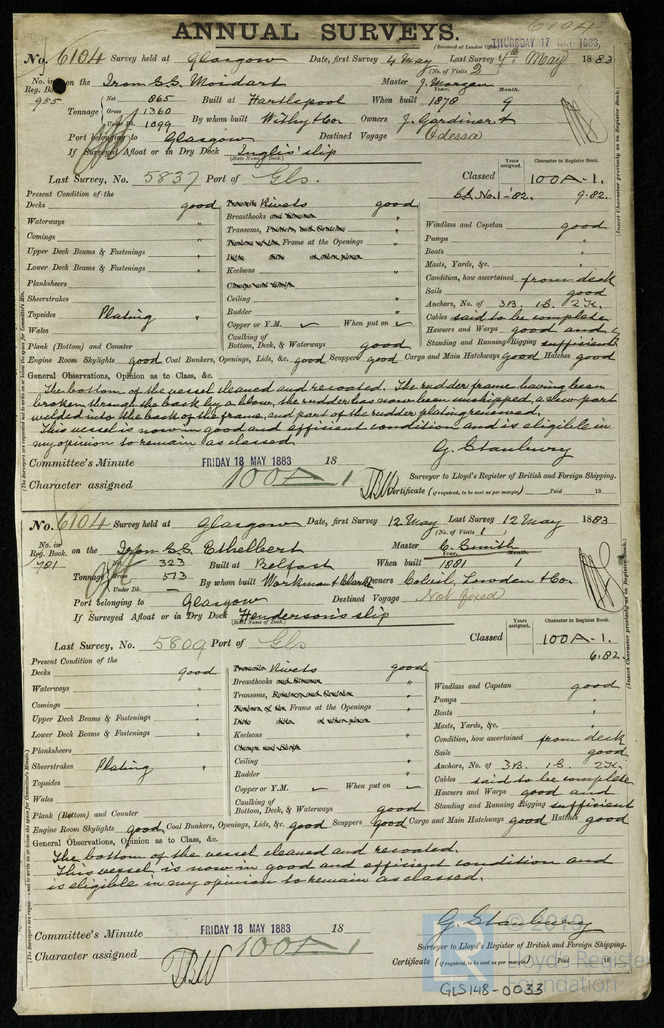 6104
ANNUAL SURVEYS.
(Received at London Office THURSDAY 17 MAY 1883,
No. 6104 Survey held at Glasgow Date, first Survey 4 May Last Survey 4th May 1883
(No. of Visits 2)
No. in Reg. Book. 955 on the Iron S.S. Moidart Master J. Morgan
Tonnage Net 865 Gross 1360 Under Dk. 1099 Built at Hartlepool When built 1878 Year. Month. 9
By whom built Withy & Co. Owners J. Gardiner &
Port belonging to Glasgow Destined Voyage Odessa
If Surveyed Afloat or in Dry Dock Inglis' slip
(State Name of Dock.)
Last Survey, No. 5837 Port of Gls. Classed Years assigned. Character in Register Book. 100A-1.
9.82.
(Insert Character precisely as in Register Book.)
Present Condition of the
Decks good
Waterways "
Comings "
Upper Deck Beams & Fastenings "
Lower Deck Beams & Fastenings "
Planksheers
Sheerstrakes
Topsides Plating "
Wales
Plank (Bottom) and Counter
Rivets good
Breasthooks "
Transoms, "
Frame at the Openings "
Keelsons "
Ceiling "
Rudder "
Copper or Y.M. ✓ When put on ✓
Caulking of Bottom, Deck, & Waterways good
Windlass and Capstan good
Pumps "
Boats "
Masts, Yards, &c. "
Condition, how ascertained from deck
Sails good
Anchors, No. of 3B. 1S. 2K.
Cables said to be complete
Hawsers and Warps good and
Standing and Running Rigging sufficient
Engine Room Skylights good Coal Bunkers, Openings, Lids, &c. good Scuppers good Cargo and Main Hatchways good Hatches good
General Observations, Opinion as to Class, &c.
The bottom of the vessel cleaned and recoated. The rudder frame having been
broken through the back by a blow, the rudder has now been unshipped, a new part
welded into the back of the frame, and part of the rudder plating renewed.
This vessel is now in good and efficient condition and is eligible in
my opinion to remain as classed.
G. Stanbury
Committee's Minute FRIDAY 18 MAY 1883 18
Surveyor to Lloyd's Register of British and Foreign Shipping.
Character assigned 100A1
Certificate (if required, to be sent as per margin) Paid 18
No. 6104 Survey held at Glasgow Date, first Survey 12 May Last Survey 12 May 1883
(No. of Visits 1
No. in Reg. Book. 781 on the Iron S.S. Ethelbert Master C. Smith
Tonnage Net 323 Gross 573 Under Dk. — Built at Belfast When built 1881 Year. Month.
By whom built Workman & Clark Owners Colvil, Lowden & Co.
Port belonging to Glasgow Destined Voyage Not fixed
If Surveyed Afloat or in Dry Dock Henderson's slip
(State Name of Dock.)
Last Survey, No. 5809 Port of Gls Classed Years assigned. Character in Register Book. 100A-1.
6.82.
(Insert Character precisely as in Register Book.)
Present Condition of the
Decks good
Waterways "
Comings "
Upper Deck Beams & Fastenings "
Lower Deck Beams & Fastenings "
Planksheers
Sheerstrakes Plating "
Topsides
Wales
Plank (Bottom) and Counter
Rivets good
Breasthooks "
Transoms, "
Frame at the Openings "
Keelsons "
Ceiling "
Rudder "
Copper or Y.M. ✓ When put on ✓
Caulking of Bottom, Deck, & Waterways good
Windlass and Capstan good
Pumps "
Boats "
Masts, Yards, &c. "
Condition, how ascertained from deck
Sails good
Anchors, No. of 3B. 1S. 2K.
Cables said to be complete
Hawsers and Warps good and
Standing and Running Rigging sufficient
Engine Room Skylights good Coal Bunkers, Openings, Lids, &c. good Scuppers good Cargo and Main Hatchways good Hatches good
General Observations, Opinion as to Class, &c.
The bottom of the vessel cleaned and recoated.
This vessel is now in good and efficient condition and
is eligible in my opinion to remain as classed.
G. Stanbury
Committee's Minute FRIDAY 18 MAY 1883 18
Surveyor to Lloyd's Register of British and Foreign Shipping.
Character assigned 100A1
Certificate (if required, to be sent as per margin) Paid 18
© 2019
Lloyd's Register
Foundation
GLS148-0033